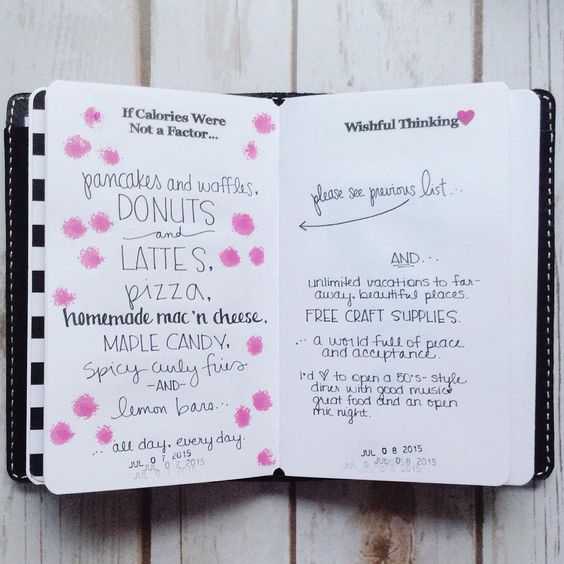 If Calories Were
Not a Factor...
pancakes and waffles,
DONUTS
and
LATTES,
pizza,
homemade mac 'n cheese,
MAPLE CANDY,
spicy curly fries
-AND-
lemon bars...
... all day, every day.
JUL 07 2015
JUL 07 2015
Wishful Thinking
please see previous list...
AND...
unlimited vacations to far-
away, beautiful places.
FREE CRAFT SUPPLIES.
... a world full of peace
and acceptance.
i'd ♡ to open a 50's-style
diner with good music,
great food and an open
mic night.
JUL 08 2015
JUL 08 2015